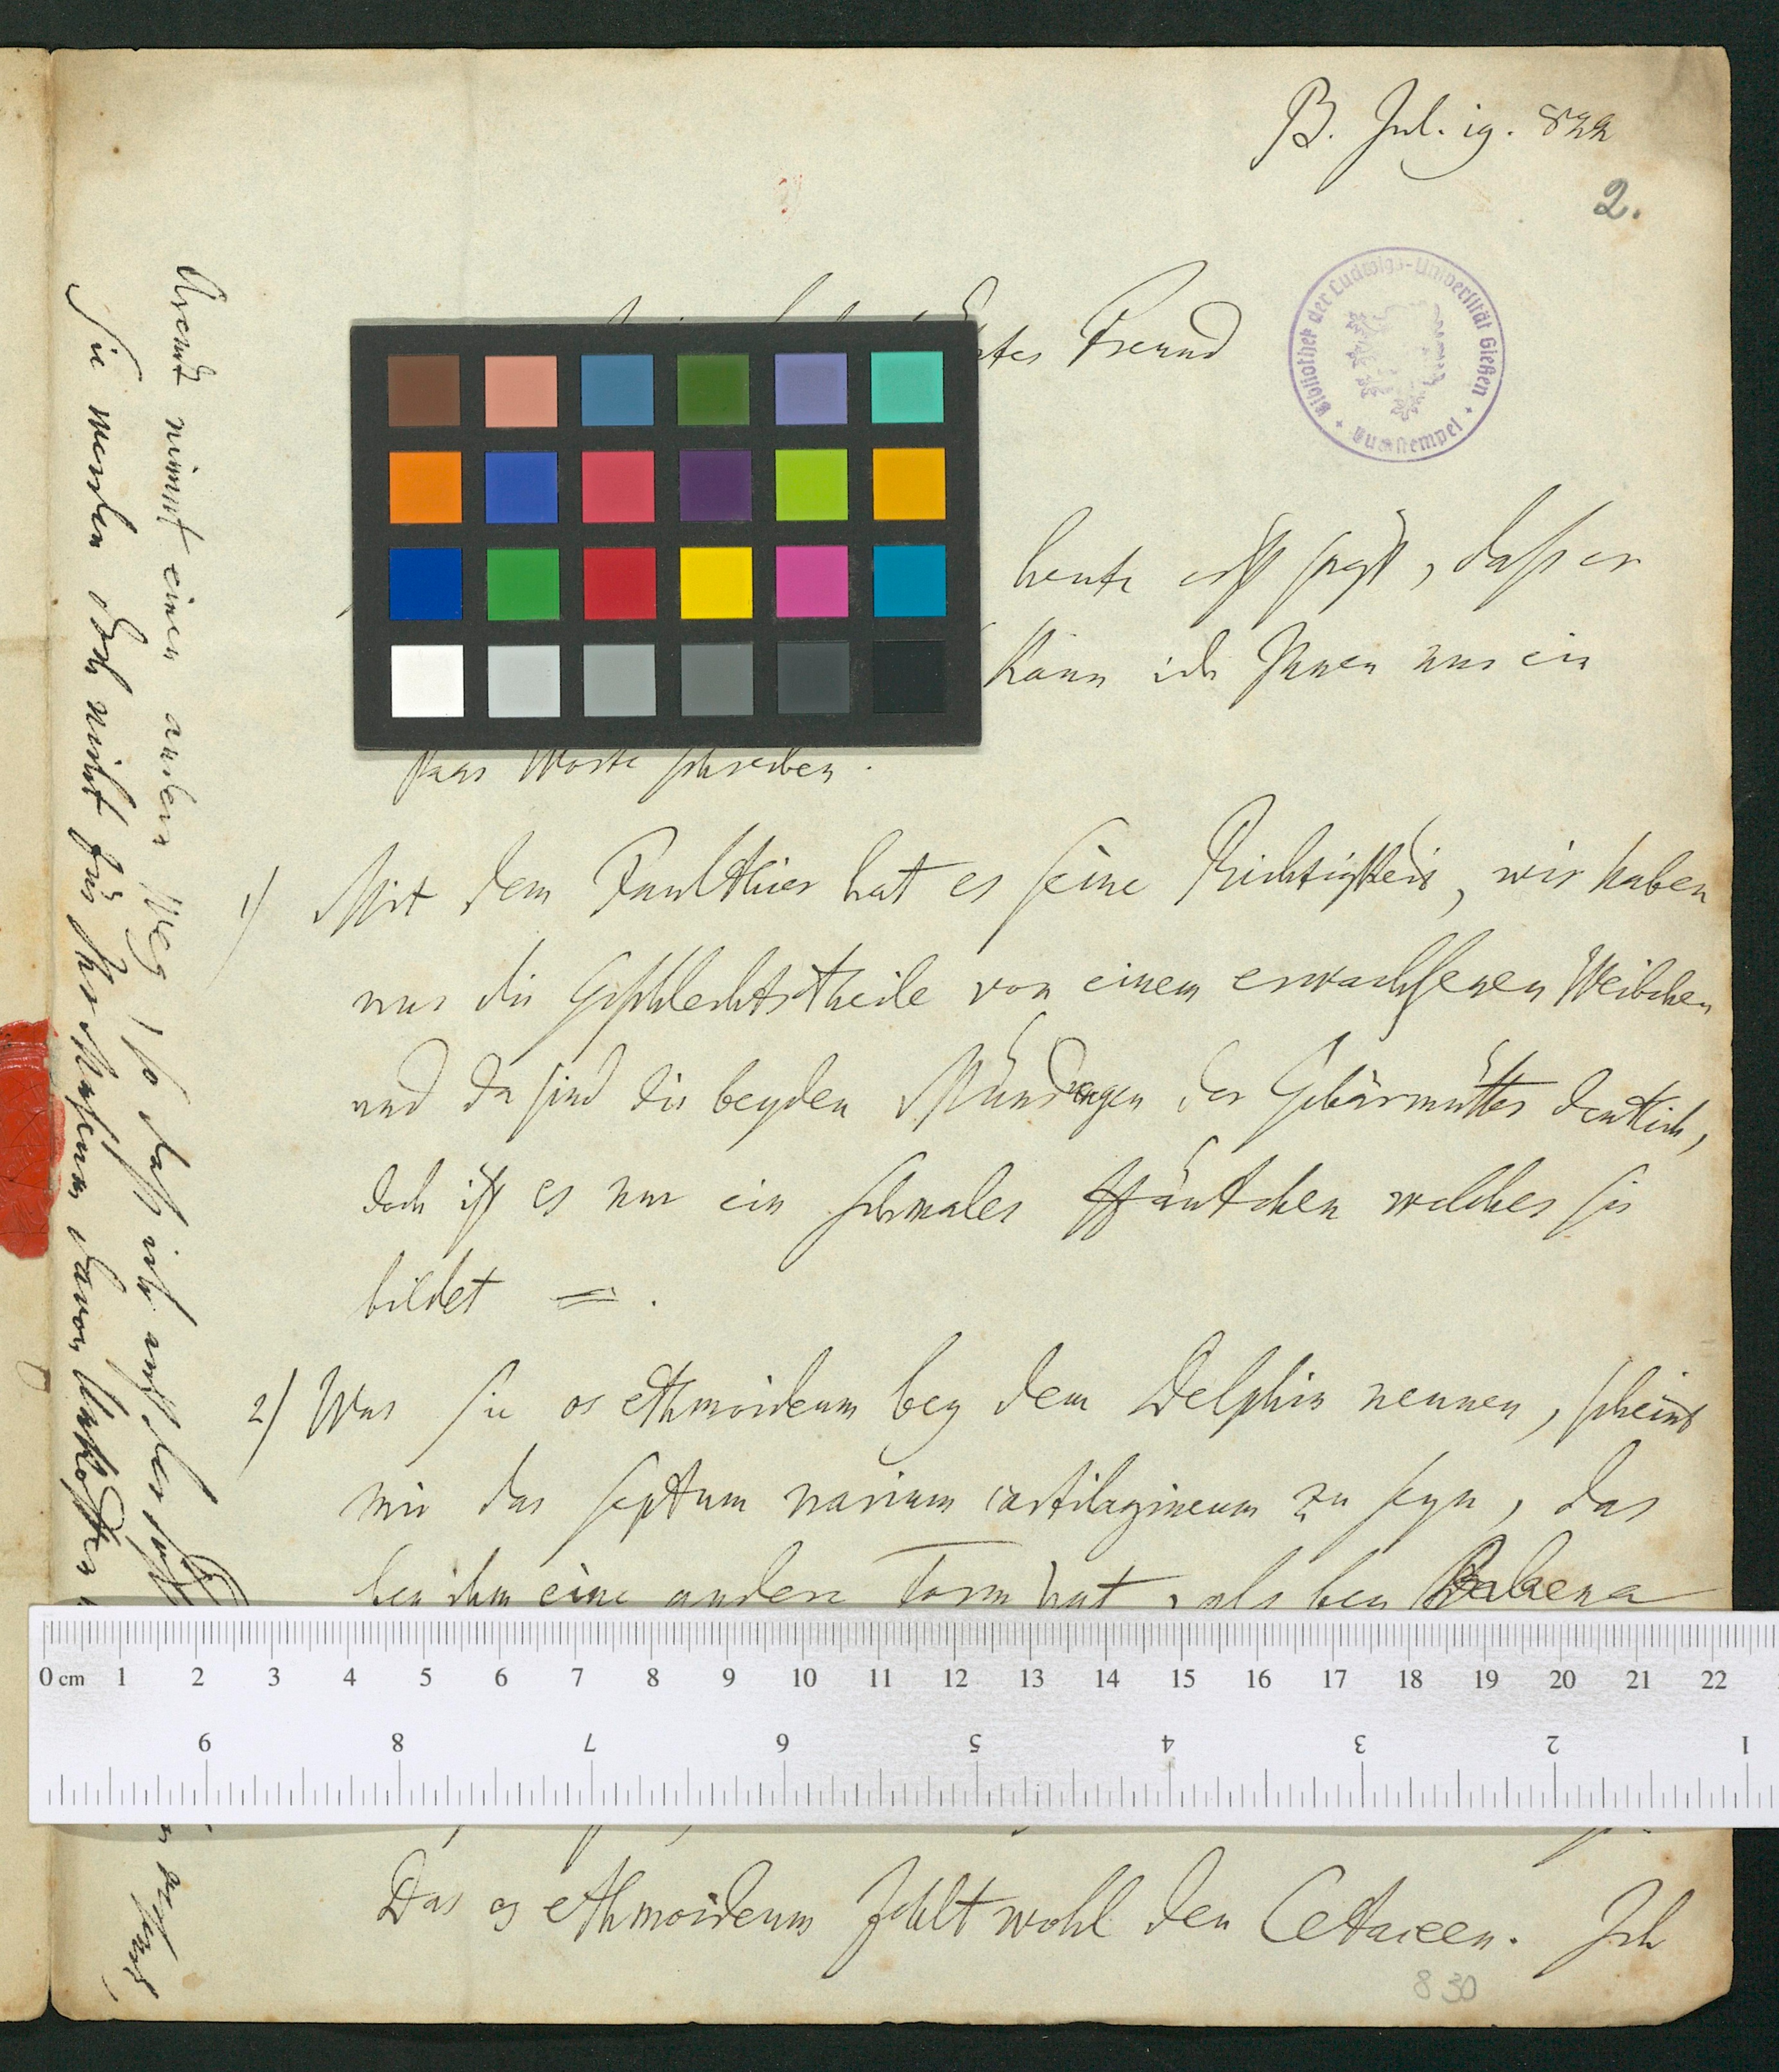 B. Jul. 19. 822
2.
Bibliothek der Ludwigs-Universität Gießen
Buchstempel
Freund
heute erst sagt, daß er
kann ich Ihnen nur ein
Paar Worte schreiben.
1) Mit dem Faulthier hat es seine Richtigkeit, wir haben
nur die Geschlechtstheile von einem erwachsenen Weibchen
und da sind die beyden Mündungen der Gebärmutter deutlich,
doch ist es nur ein schmales Häutchen welches sie
bildet =.
2) Was Sie os ethmoideum bey dem Delphin nennen, scheint
mir das septum narium cartilagineum zu seyn, das
bey ihm eine andere Form hat, als bey Balaena
0 cm 1 2 3 4 5 6 7 8 9 10 11 12 13 14 15 16 17 18 19 20 21 22
9 8 7 6 5 4 3 2 1
Das os ethmoideum fehlt wohl den Cetaceen. Ich
830
nimmt einen andern Weg, so daß ich
Sie werden doch nicht für Ihr Museum davon Unkosten